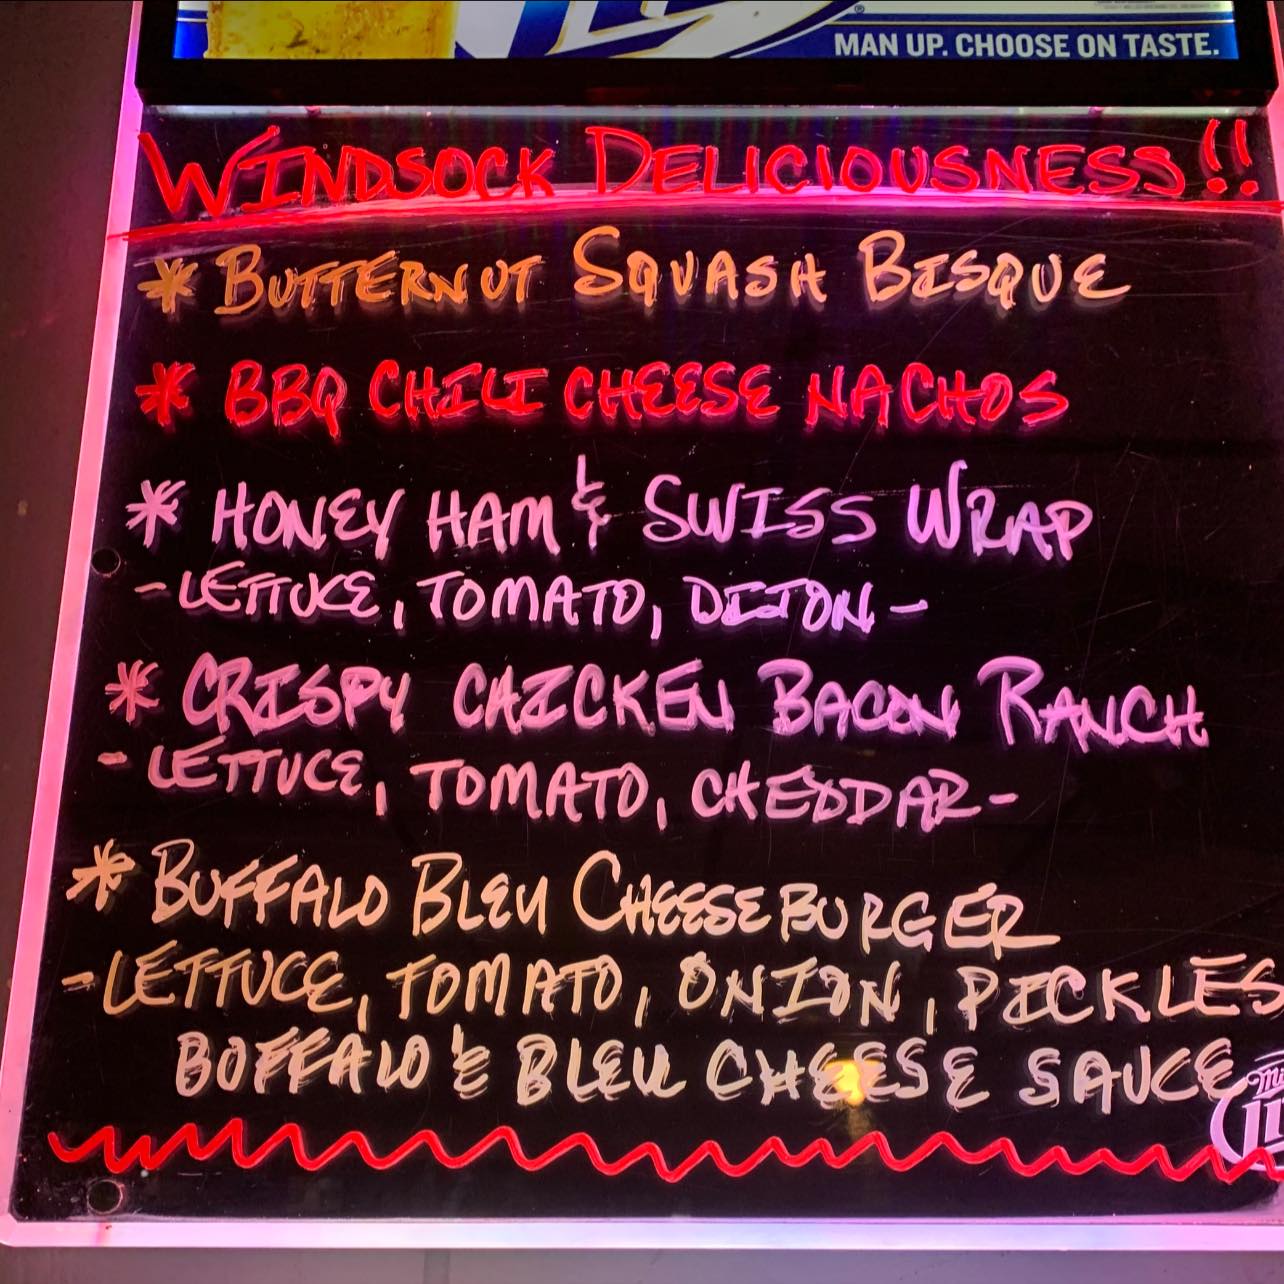 MAN UP. CHOOSE ON TASTE.
WINDSOCK DELICIOUSNESS!!
* BUTTERNUT SQUASH BISQUE
* BBQ CHILI CHEESE NACHOS
* HONEY HAM & SWISS WRAP
- LETTUCE, TOMATO, DIJON -
* CRISPY CHICKEN BACON RANCH
- LETTUCE, TOMATO, CHEDDAR -
* BUFFALO BLEU CHEESEBURGER
- LETTUCE, TOMATO, ONION, PICKLES
BUFFALO & BLEU CHEESE SAUCE